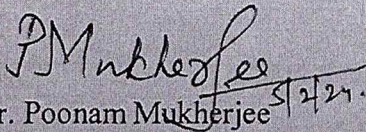 PMukherjee
5/2/24.
r. Poonam Mukherjee